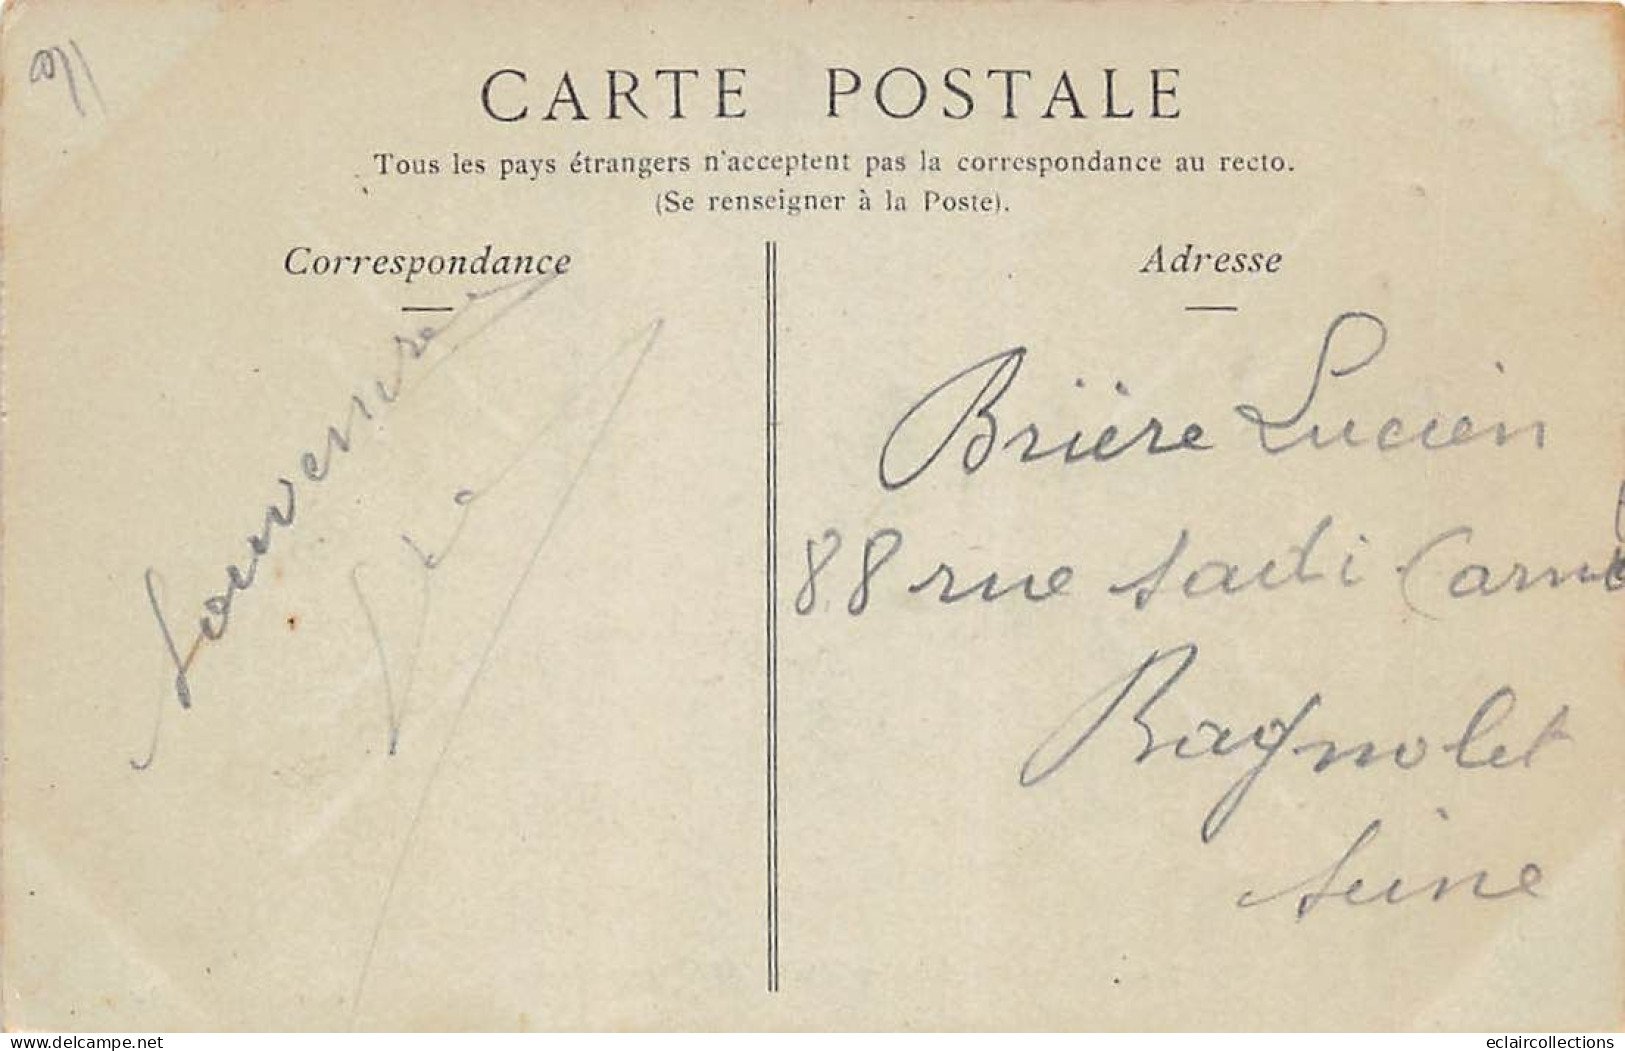 CARTE POSTALE
Tous les pays étrangers n'acceptent pas la correspondance au recto.
(Se renseigner à la Poste).
Correspondance
Adresse
Brière Lucien
88 rue Sadi Carnot
Bagnolet
Seine
www.delcampe.net
eclaircollections